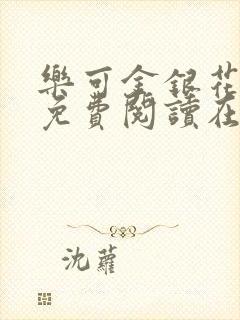 樂可金銀花
免費閱讀在
沈蘿